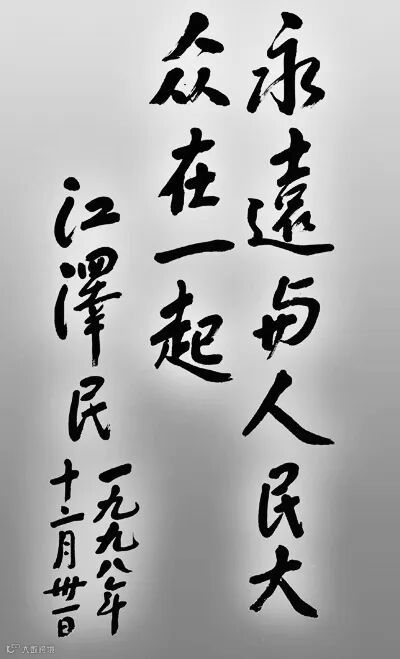 永遠与人民大
众在一起
江澤民
一九九八年
十二月卅一日
大武汉城